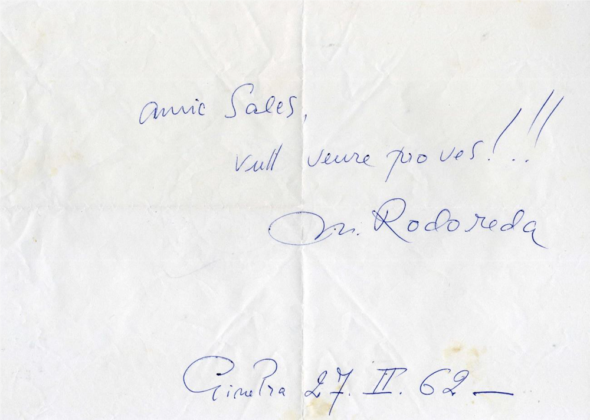 amic Sales,
vull veure proves!!!
M. Rodoreda
Ginebra 27. II. 62 —